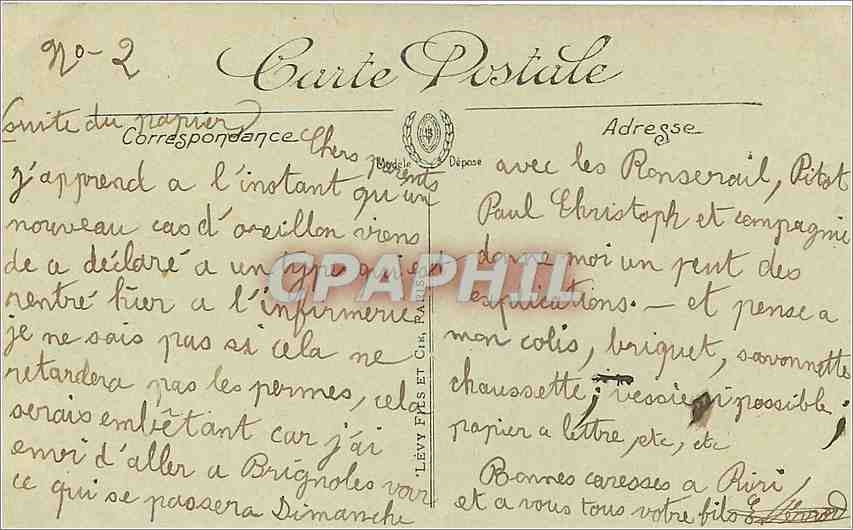 No - 2
Carte Postale
(suite du papier)
Correspondance
Adresse
Modèle Déposé
Chers parents
j'apprend a l'instant qu'un
nouveau cas d'oreillon viens
de a déclaré a un type qui est
rentré hier a l'infirmerie
je ne sais pas si cela ne
retardera pas les permes, cela
serais embêtant car j'ai
envi d'aller a Brignoles voir
ce qui se passera Dimanche
LÉVY FILS ET CIE, PARIS
avec les Ronserail, Pitot
Paul Christoph et compagnie
donne moi un peut des
explications. — et pense a
mon colis, briquet, savonnette
chaussette; vessie si possible;
papier a lettre, etc, etc
Bonnes caresses a Riri
et a vous tous votre fils
CPAPHIL